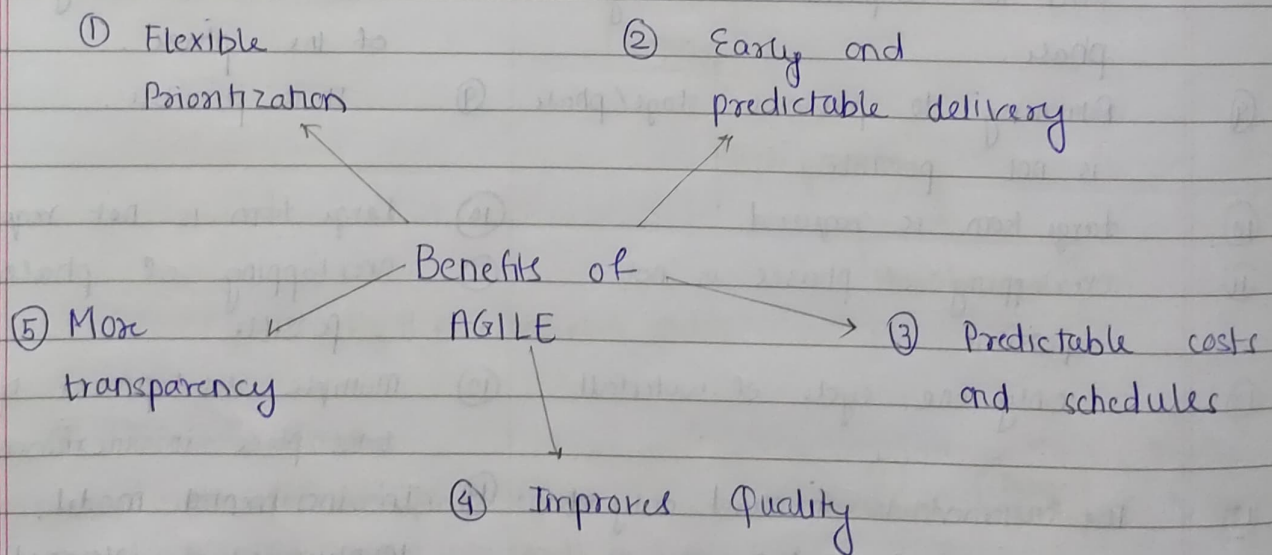 ① Flexible
Prioritization
② Early and
predictable delivery
Benefits of
AGILE
⑤ More
transparency
③ Predictable costs
and schedules
④ Improves Quality